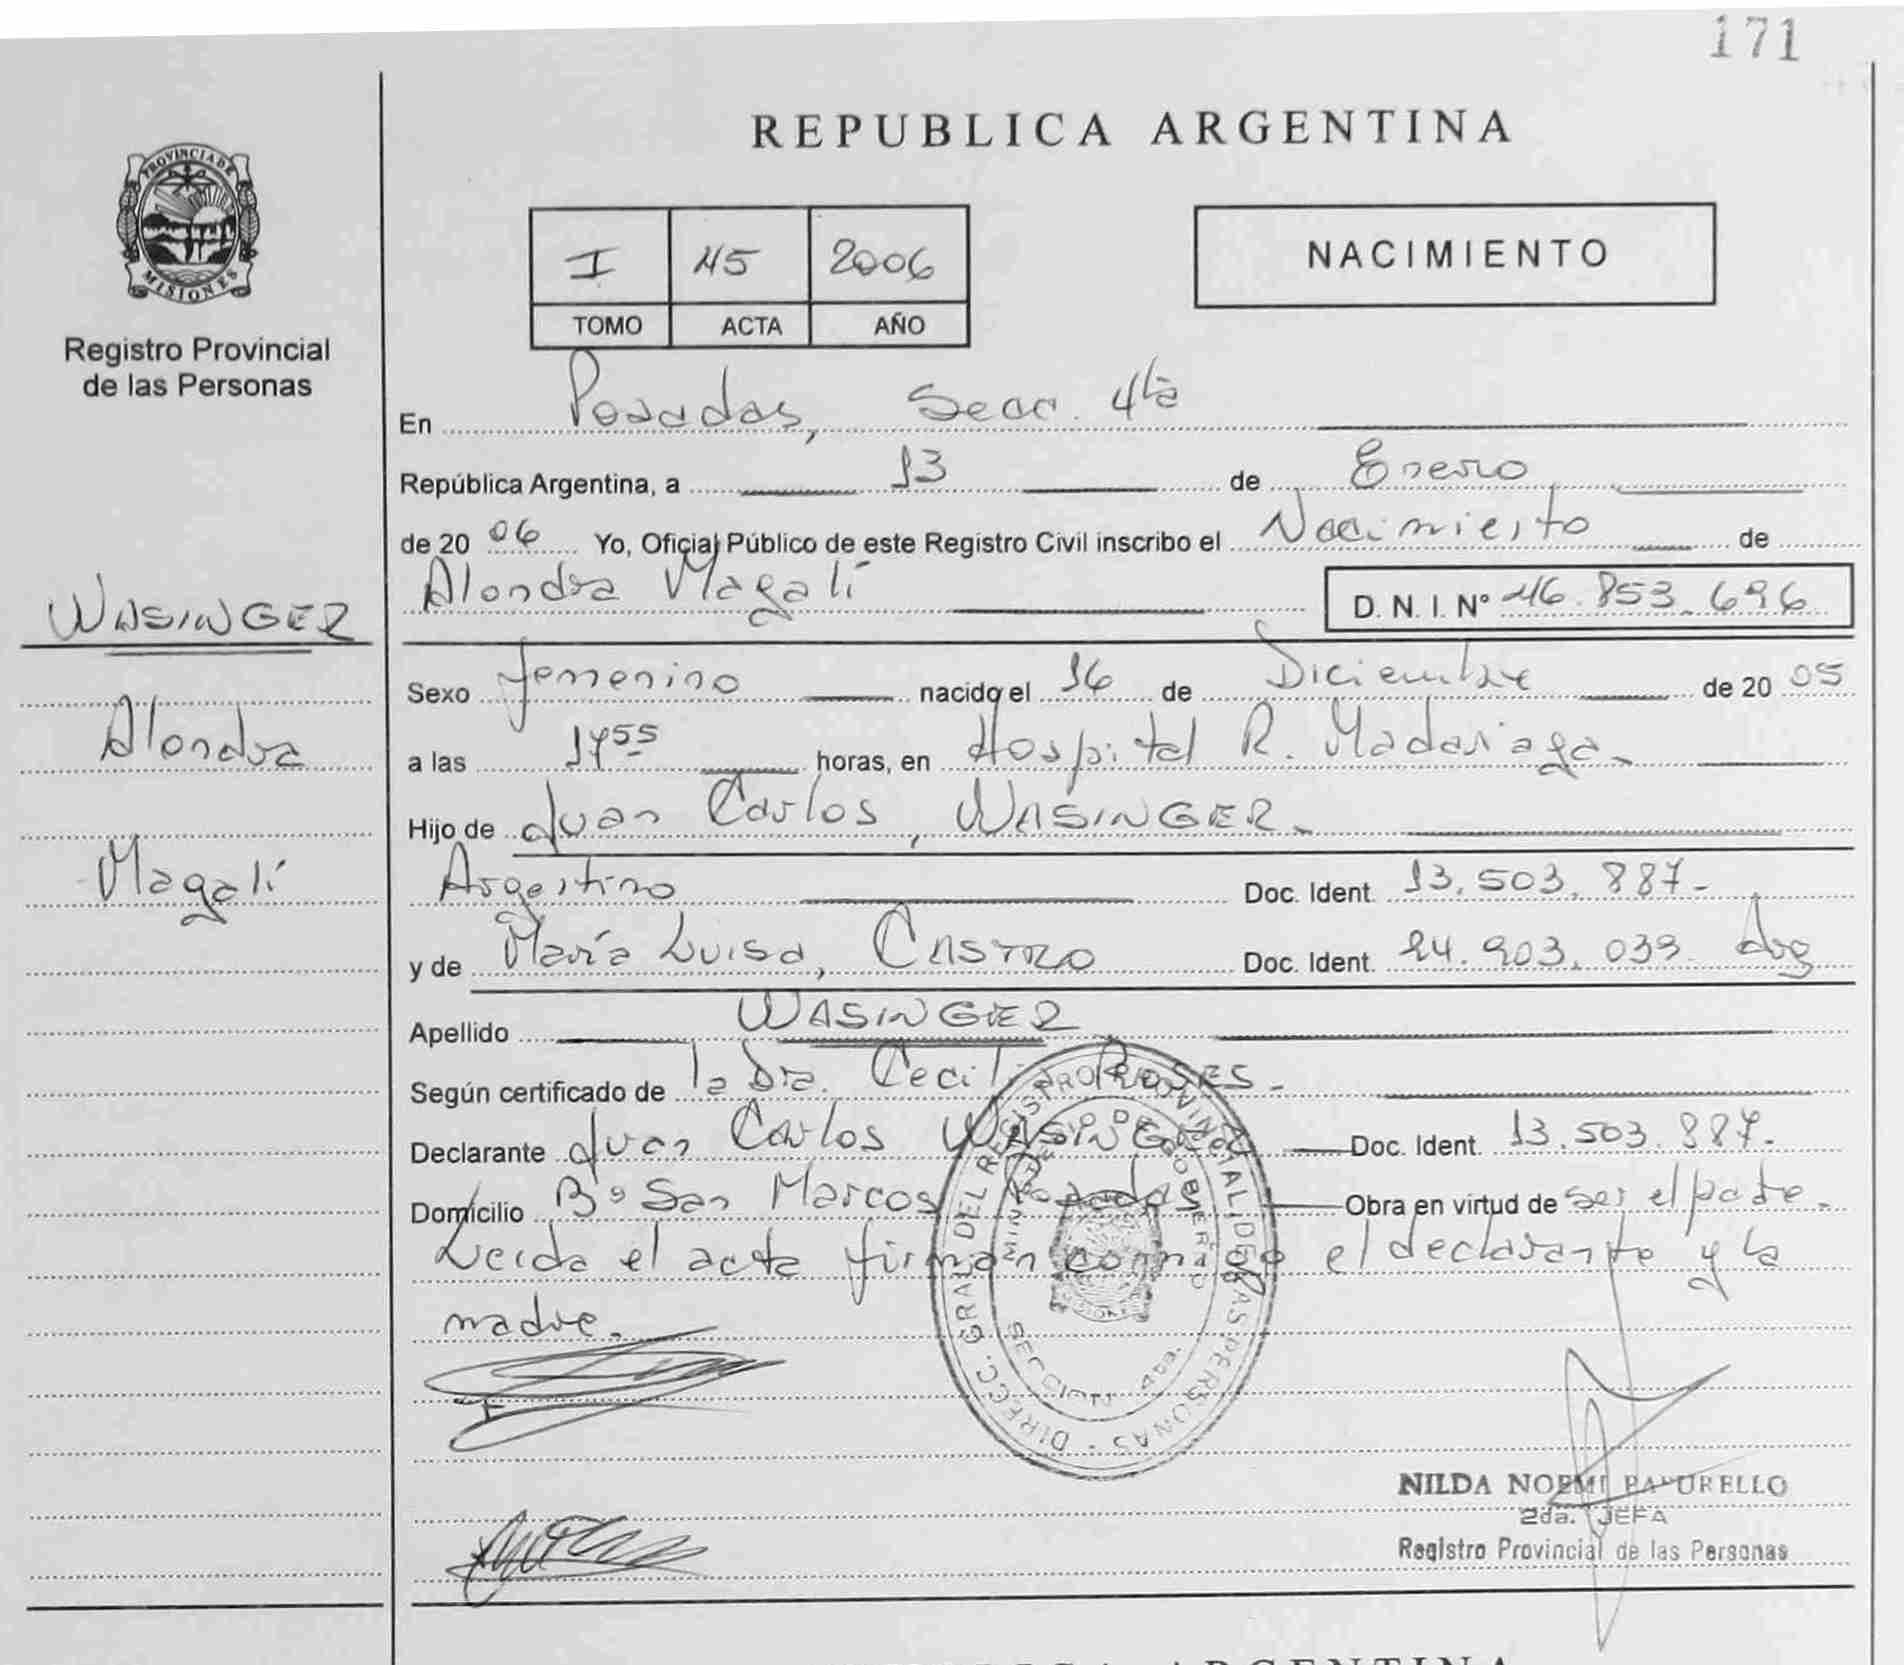 171
REPUBLICA ARGENTINA
PROVINCIA DE
MISIONES
Registro Provincial
de las Personas
I 45 2006
TOMO ACTA AÑO
NACIMIENTO
En Posadas, Secc. 4ta
República Argentina, a 13 de Enero
de 20 06 Yo, Oficial Público de este Registro Civil inscribo el Nacimiento de
Alondra Magalí D. N. I. Nº 46.853.696
WASINGER
Alondra
Magalí
Sexo femenino nacido el 16 de Diciembre de 20 05
a las 17 55 horas, en Hospital R. Madariaga.
Hijo de Juan Carlos, WASINGER.
Argentino Doc. Ident. 13.503.887.
y de María Luisa, CASTRO Doc. Ident. 24.903.039. Arg
Apellido WASINGER
Según certificado de la Dra. Cecilia ROSES.
Declarante Juan Carlos WASINGER Doc. Ident. 13.503.887.
Domicilio Bº San Marcos Posadas Obra en virtud de ser el padre.
Leida el acta firman conmigo el declarante y la
madre.
DIRECC. GRAL DEL REGISTRO PROVINCIAL DE LAS PERSONAS
MINISTERIO DE GOBIERNO
SECCION 4ta.
NILDA NOEMI PAPURELLO
2da. JEFA
Registro Provincial de las Personas
REPUBLICA ARGENTINA